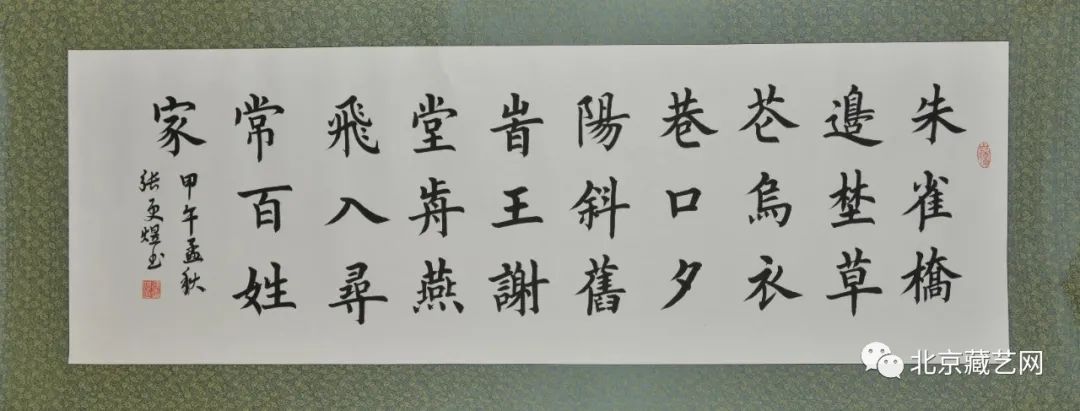 朱雀橋
邊埜草
花烏衣
巷口夕
陽斜舊
旹王謝
堂歬燕
飛入尋
常百姓
家
甲午孟秋
張更煜书
北京藏艺网